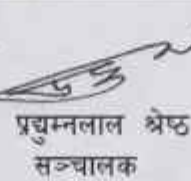 प्रद्युम्नलाल श्रेष्ठ
सञ्चालक